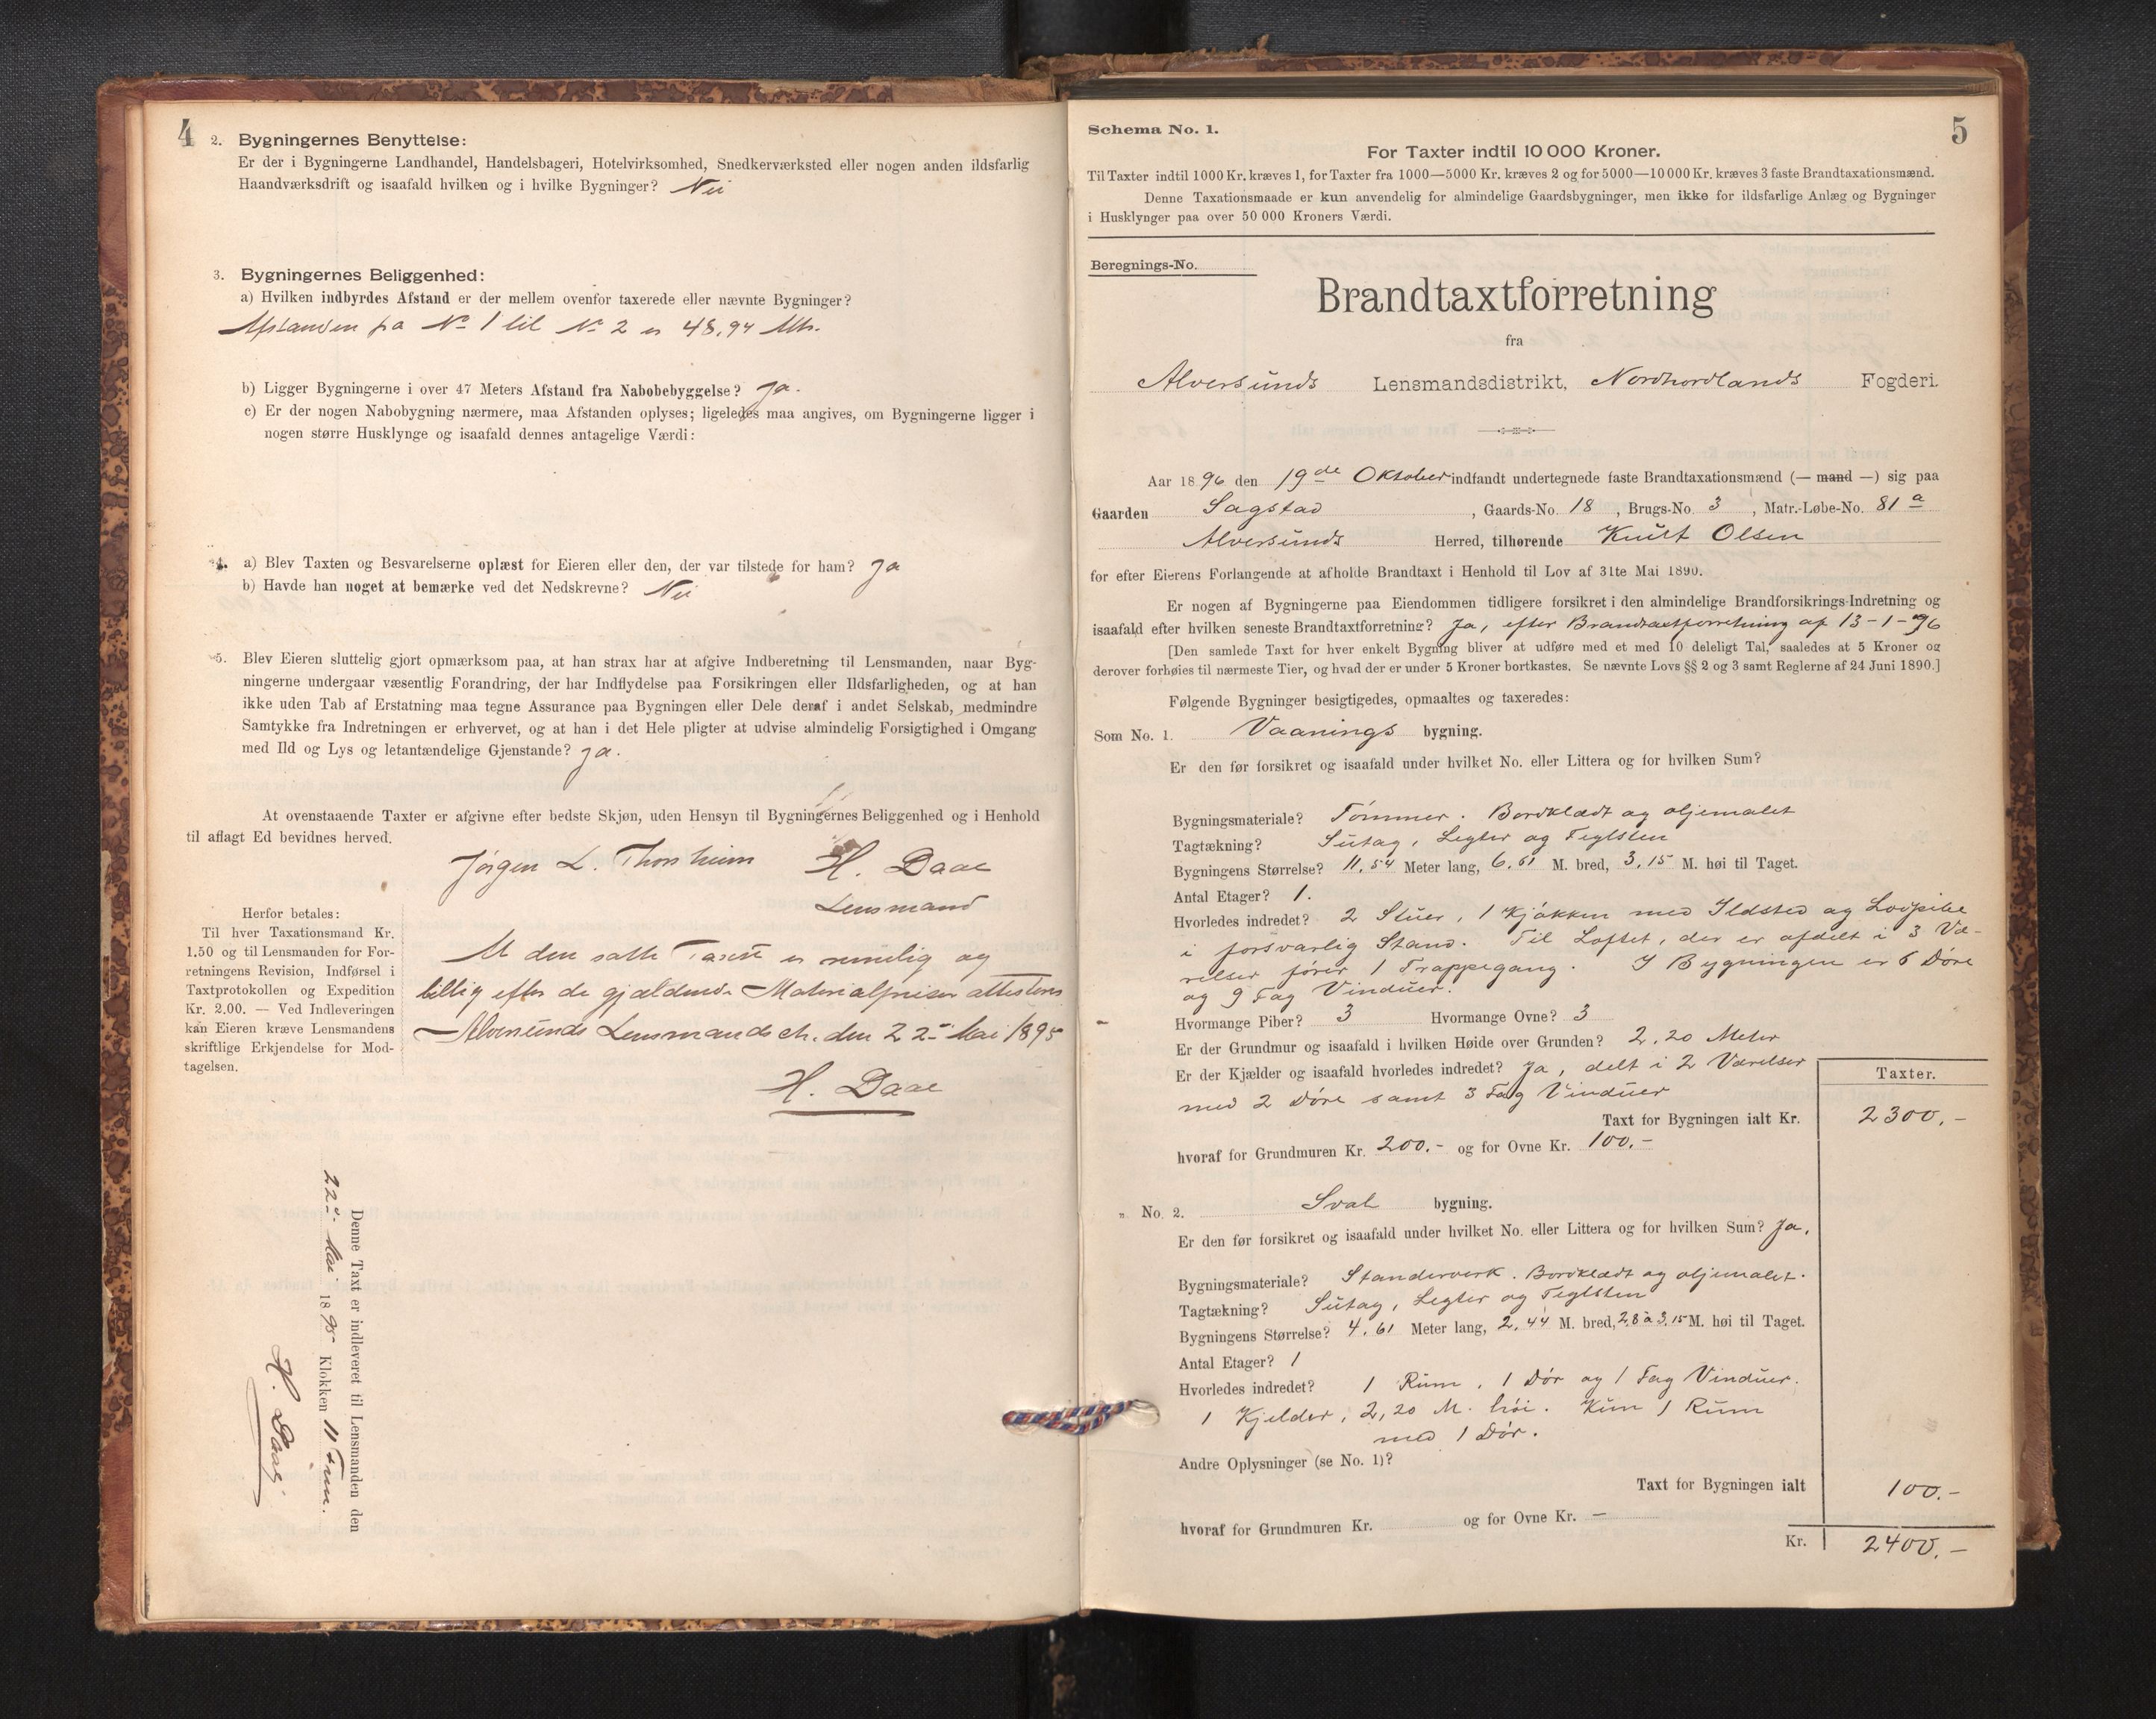 4
2. Bygningernes Benyttelse:
Er der i Bygningerne Landhandel, Handelsbageri, Hotelvirksomhed, Snedkerværksted eller nogen anden ildsfarlig
Haandværksdrift og isaafald hvilken og i hvilke Bygninger? Nei
3. Bygningernes Beliggenhed:
a) Hvilken indbyrdes Afstand er der mellem ovenfor taxerede eller nævnte Bygninger?
Afstanden fra No 1 til No 2 er 48,94 Mtr.
b) Ligger Bygningerne i over 47 Meters Afstand fra Nabobebyggelse? Ja.
c) Er der nogen Nabobygning nærmere, maa Afstanden oplyses; ligeledes maa angives, om Bygningerne ligger i
nogen større Husklynge og isaafald dennes antagelige Værdi:
4. a) Blev Taxten og Besvarelserne oplæst for Eieren eller den, der var tilstede for ham? Ja
b) Havde han noget at bemærke ved det Nedskrevne? Nei
5. Blev Eieren sluttelig gjort opmærksom paa, at han strax har at afgive Indberetning til Lensmanden, naar Byg-
ningerne undergaar væsentlig Forandring, der har Indflydelse paa Forsikringen eller Ildsfarligheden, og at han
ikke uden Tab af Erstatning maa tegne Assurance paa Bygningen eller Dele deraf i andet Selskab, medmindre
Samtykke fra Indretningen er erhvervet, og at han i det Hele pligter at udvise almindelig Forsigtighed i Omgang
med Ild og Lys og letantændelige Gjenstande? Ja.
At ovenstaaende Taxter er afgivne efter bedste Skjøn, uden Hensyn til Bygningernes Beliggenhed og i Henhold
til aflagt Ed bevidnes herved.
Jørgen L. Thorsheim H. Daae
Lensmand
Herfor betales:
Til hver Taxationsmand Kr.
1.50 og til Lensmanden for For-
retningens Revision, Indførsel i
Taxtprotokollen og Expedition
Kr. 2.00. — Ved Indleveringen
kan Eieren kræve Lensmandens
skriftlige Erkjendelse for Mod-
tagelsen.
At den satte Taxt er rimelig og
billig efter de gjældende Materialpriser attesteres
Alversunds Lensmandsk. den 22 Mai 1895
H. Daae
Denne Taxt er indleveret til Lensmanden den
22de Mai 1895 Klokken 11 Form.
H. Daae
5
Schema No. 1.
For Taxter indtil 10 000 Kroner.
Til Taxter indtil 1000 Kr. kræves 1, for Taxter fra 1000—5000 Kr. kræves 2 og for 5000—10 000 Kr. kræves 3 faste Brandtaxationsmænd.
Denne Taxationsmaade er kun anvendelig for almindelige Gaardsbygninger, men ikke for ildsfarlige Anlæg og Bygninger
i Husklynger paa over 50 000 Kroners Værdi.
Beregnings-No.
Brandtaxtforretning
fra
Alversunds Lensmandsdistrikt, Nordhordlands Fogderi.
Aar 1896 den 19de Oktober indfandt undertegnede faste Brandtaxationsmænd (— mand —) sig paa
Gaarden Sagstad, Gaards-No. 18, Brugs-No. 3, Matr.-Løbe-No. 81a
Alversunds Herred, tilhørende Knut Olsen
for efter Eierens Forlangende at afholde Brandtaxt i Henhold til Lov af 31te Mai 1890.
Er nogen af Bygningerne paa Eiendommen tidligere forsikret i den almindelige Brandforsikrings-Indretning og
isaafald efter hvilken seneste Brandtaxtforretning? Ja, efter Brandtaxtforretning af 13-1-96
[Den samlede Taxt for hver enkelt Bygning bliver at udføre med et med 10 deleligt Tal, saaledes at 5 Kroner og
derover forhøies til nærmeste Tier, og hvad der er under 5 Kroner bortkastes. Se nævnte Lovs §§ 2 og 3 samt Reglerne af 24 Juni 1890.]
Følgende Bygninger besigtigedes, opmaaltes og taxeredes:
Som No. 1. Vaanings bygning.
Er den før forsikret og isaafald under hvilket No. eller Littera og for hvilken Sum?
Bygningsmateriale? Tømmer. Bordklædt og oljemalet
Tagtækning? Sutag, Legter og Teglsten
Bygningens Størrelse? 11,54 Meter lang, 6,61 M. bred, 3,15 M. høi til Taget.
Antal Etager? 1.
Hvorledes indredet? 2 Stuer, 1 Kjøkken med Ildsted og Lovpibe
i forsvarlig Stand. Til Loftet, der er afdelt i 3 Væ-
relser fører 1 Trappegang. I Bygningen er 6 Døre
og 9 Fag Vinduer.
Hvormange Piber? 3 Hvormange Ovne? 3
Er der Grundmur og isaafald i hvilken Høide over Grunden? 2,20 Meter
Er der Kjælder og isaafald hvorledes indredet? Ja, delt i 2 Værelser
med 2 Døre samt 3 Fag Vinduer
Taxter.
Taxt for Bygningen ialt Kr. 2300.-
hvoraf for Grundmuren Kr. 200.- og for Ovne Kr. 100.-
" No. 2. Sval bygning.
Er den før forsikret og isaafald under hvilket No. eller Littera og for hvilken Sum? Ja.
Bygningsmateriale? Standerverk. Bordklædt og oljemalet.
Tagtækning? Sutag, Legter og Teglsten
Bygningens Størrelse? 4,61 Meter lang, 2,44 M. bred, 2,8 à 3,15 M. høi til Taget.
Antal Etager? 1
Hvorledes indredet? 1 Rum, 1 Dør og 1 Fag Vinduer.
1 Kjelder, 2,20 M. høi. Kun 1 Rum
med 1 Dør.
Andre Oplysninger (se No. 1)?
Taxt for Bygningen ialt 100.-
hvoraf for Grundmuren Kr. og for Ovne Kr. —
Kr. 2400.-